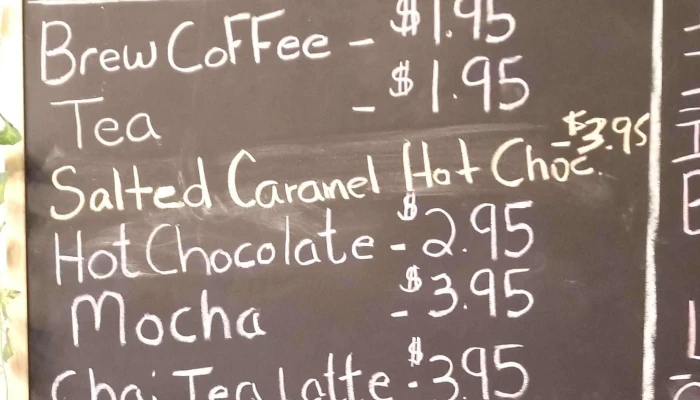 Brew Coffee - $1.95
Tea - $1.95
Salted Caramel Hot Choc. - $3.95
Hot Chocolate - $2.95
Mocha - $3.95
Chai Tea Latte - $3.95